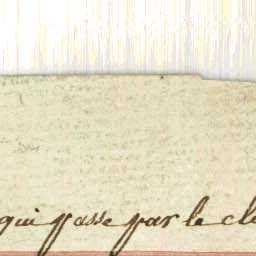 qui passe par le cle